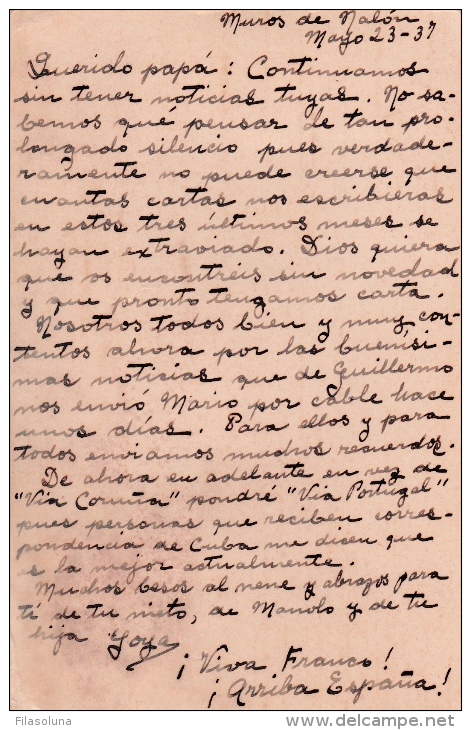 Muros de Nalón
Mayo 23-37
Querido papá: Continuamos
sin tener noticias tuyas. No sa-
bemos qué pensar de tan pro-
longado silencio pues verdade-
ramente no puede creerse que
cuantas cartas nos escribiéras
en estos tres últimos meses se
hayan extraviado. Dios quiera
que os encontréis sin novedad
y que pronto tengamos carta.
Nosotros todos bien y muy con-
tentos ahora por las buenísi-
mas noticias que de Guillermo
nos envió Mario por cable hace
unos días. Para ellos y para
todos enviamos muchos recuerdos.
De ahora en adelante en vez de
"Via Coruña" pondré "Via Portugal"
pues personas que reciben corres-
pondencia de Cuba me dicen que
es la mejor actualmente.
Muchos besos al nene y abrazos para
tí de tu nieto, de Manolo y de tu
hija Goya
¡Viva Franco!
¡Arriba España!
Filasoluna
www.delcampe.net